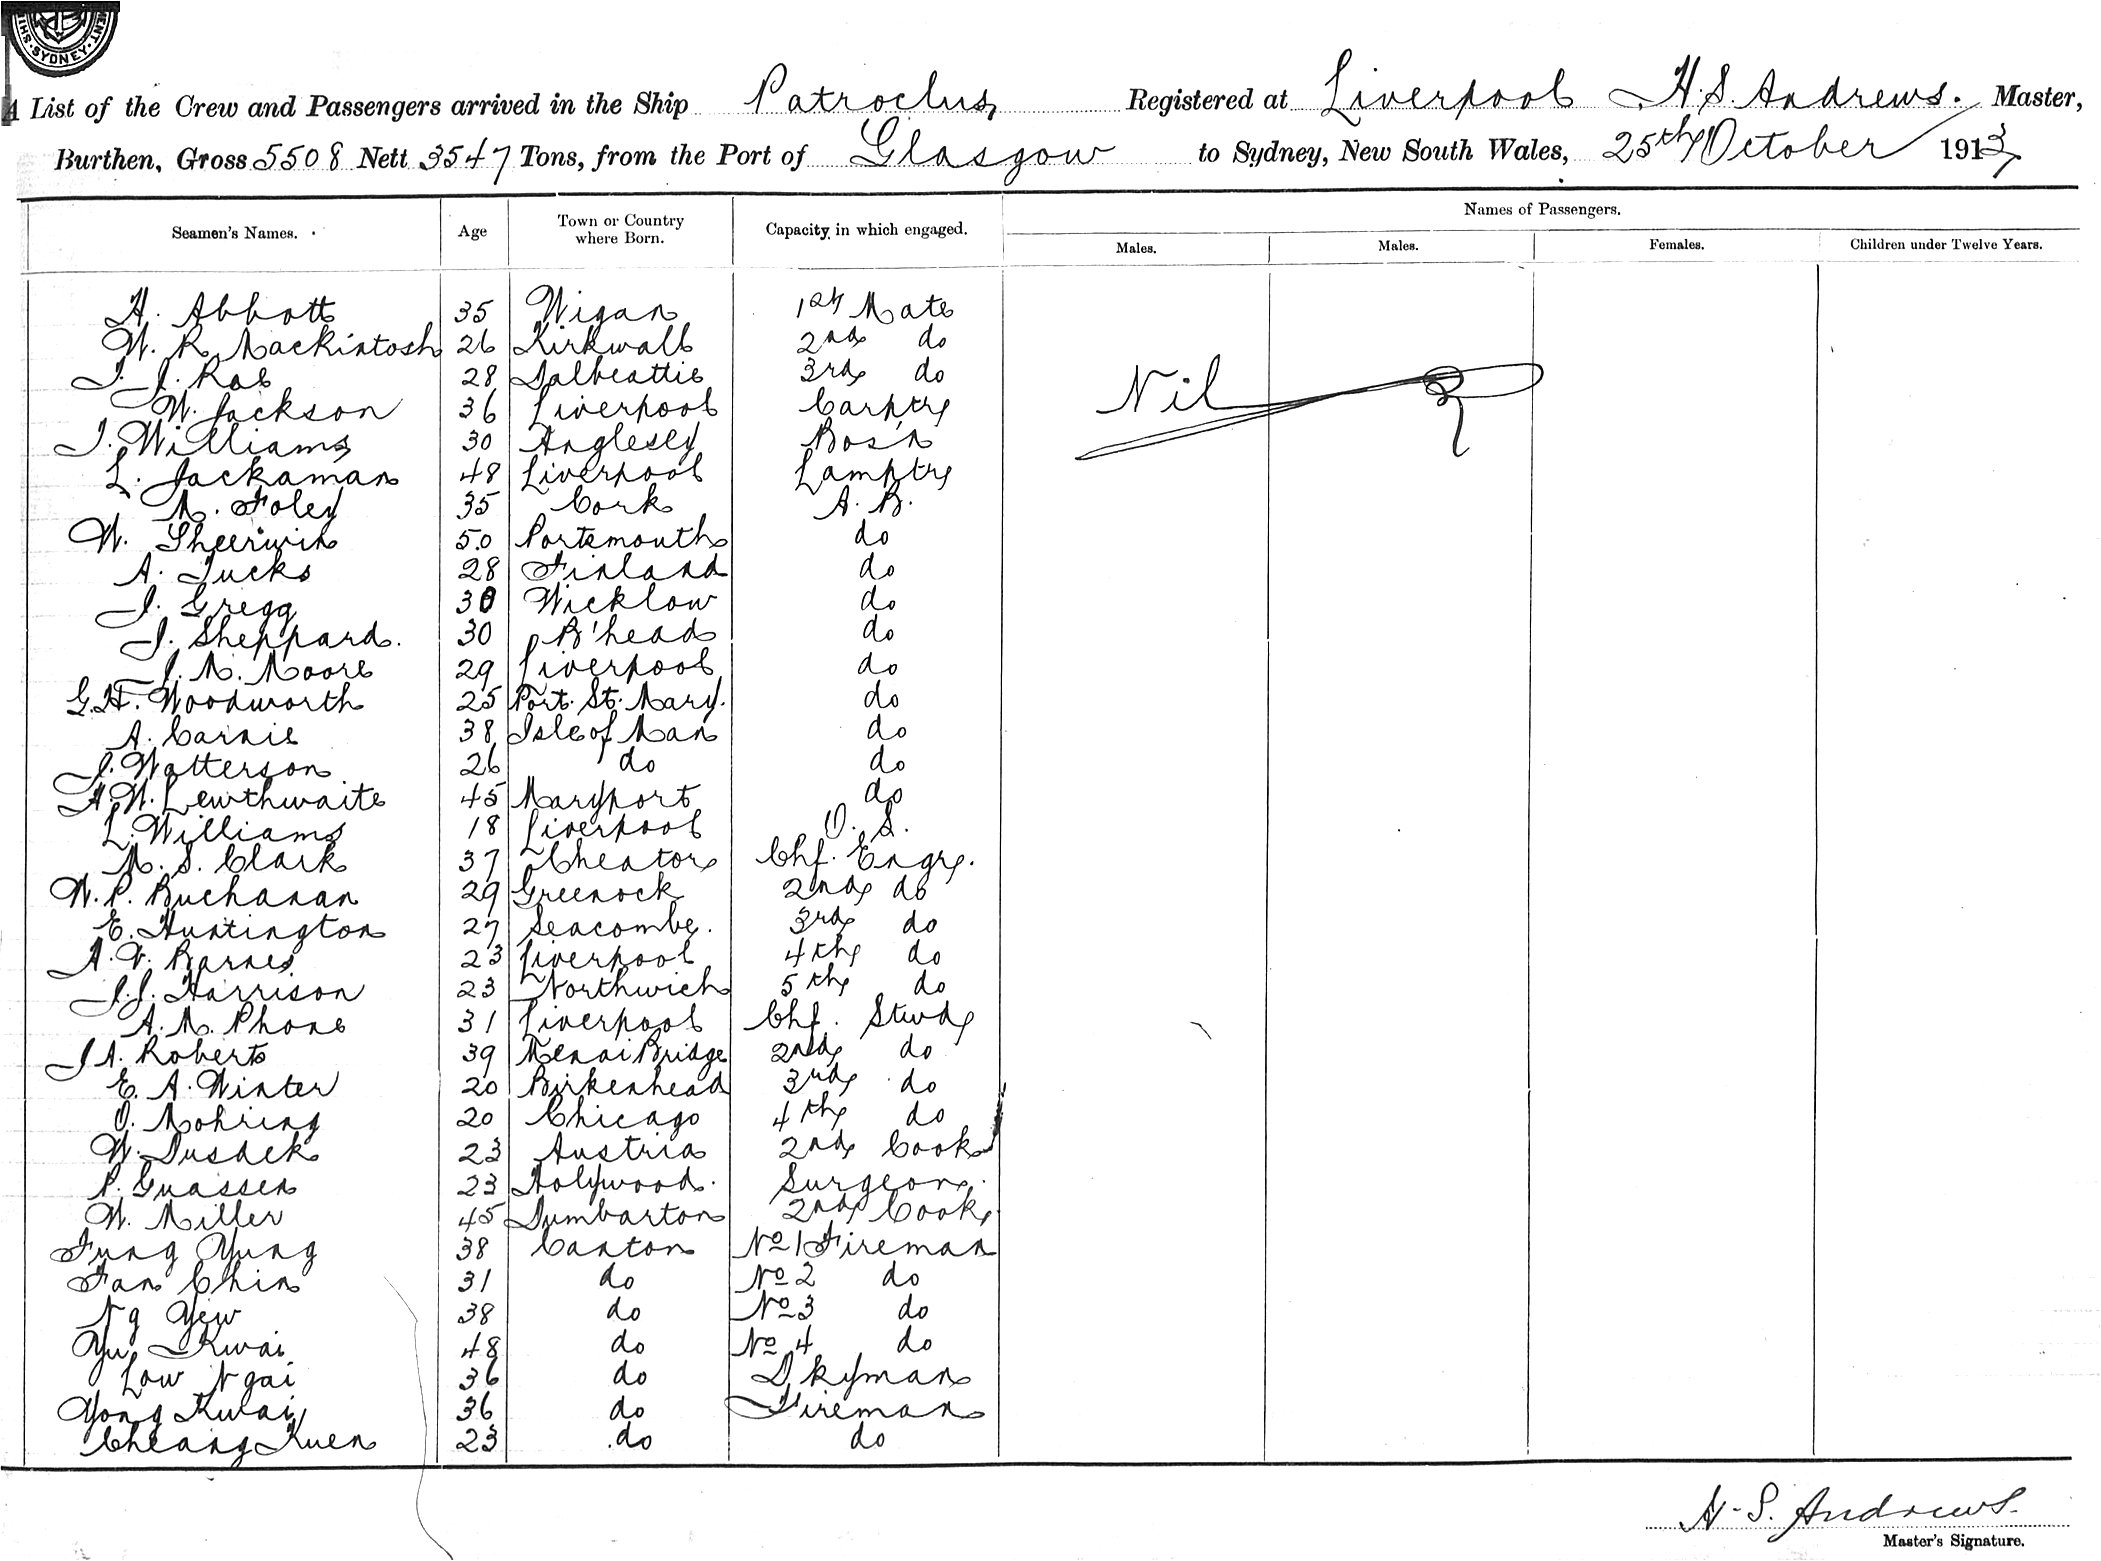 SYDNEY
A List of the Crew and Passengers arrived in the Ship Patroclus Registered at Liverpool H. S. Andrews. Master,
Burthen, Gross 5508 Nett 3547 Tons, from the Port of Glasgow to Sydney, New South Wales, 25th October 1913
Names of Passengers.
Seamen's Names. Age Town or Country where Born. Capacity in which engaged. Males. Males. Females. Children under Twelve Years.
H. Abbott 35 Wigan 1st Mate
W. R. Mackintosh 26 Kirkwall 2nd do
J. J. Rae 28 Dalbeattie 3rd do
Nil
W. Jackson 36 Liverpool Carptr
J. Williams 30 Anglesey Bos'n
L. Jackaman 48 Liverpool Lamptr
M. Foley 35 Cork A. B.
W. Sheerwin 50 Portsmouth do
A. Tucks 28 Finland do
J. Gregg 30 Wicklow do
J. Sheppard. 30 B'head do
J. M. Moore 29 Liverpool do
G. H. Woodworth 25 Port. St. Mary. do
A. Carnie 38 Isle of Man do
J. Watterson 26 do do
H. W. Lewthwaite 45 Maryport do
L. Williams 18 Liverpool O. S.
M. S. Clark 37 Cheator Chf. Engr.
W. P. Buchanan 29 Greenock 2nd do
E. Huntington 27 Seacombe. 3rd do
A. V. Barnes 23 Liverpool 4th do
J. J. Harrison 23 Northwich 5th do
A. M. Phone 31 Liverpool Chf. Stwd
J A. Roberts 39 Menai Bridge 2nd do
E. A. Winter 20 Birkenhead 3rd do
O. Mohring 20 Chicago 4th do
W. Dusdek 23 Austria 2nd Cook
P. Guassen 23 Holywood. Surgeon.
W. Miller 45 Dumbarton 2nd Cook
Fung Yung 38 Canton No 1 Fireman
Fan Chin 31 do No 2 do
Ng Yew 38 do No 3 do
Yu Kwai 48 do No 4 do
Low Ngai 36 do Dkyman
Yong Kwai 36 do Fireman
Cheang Kuen 23 do do
H. S. Andrews.
Master's Signature.